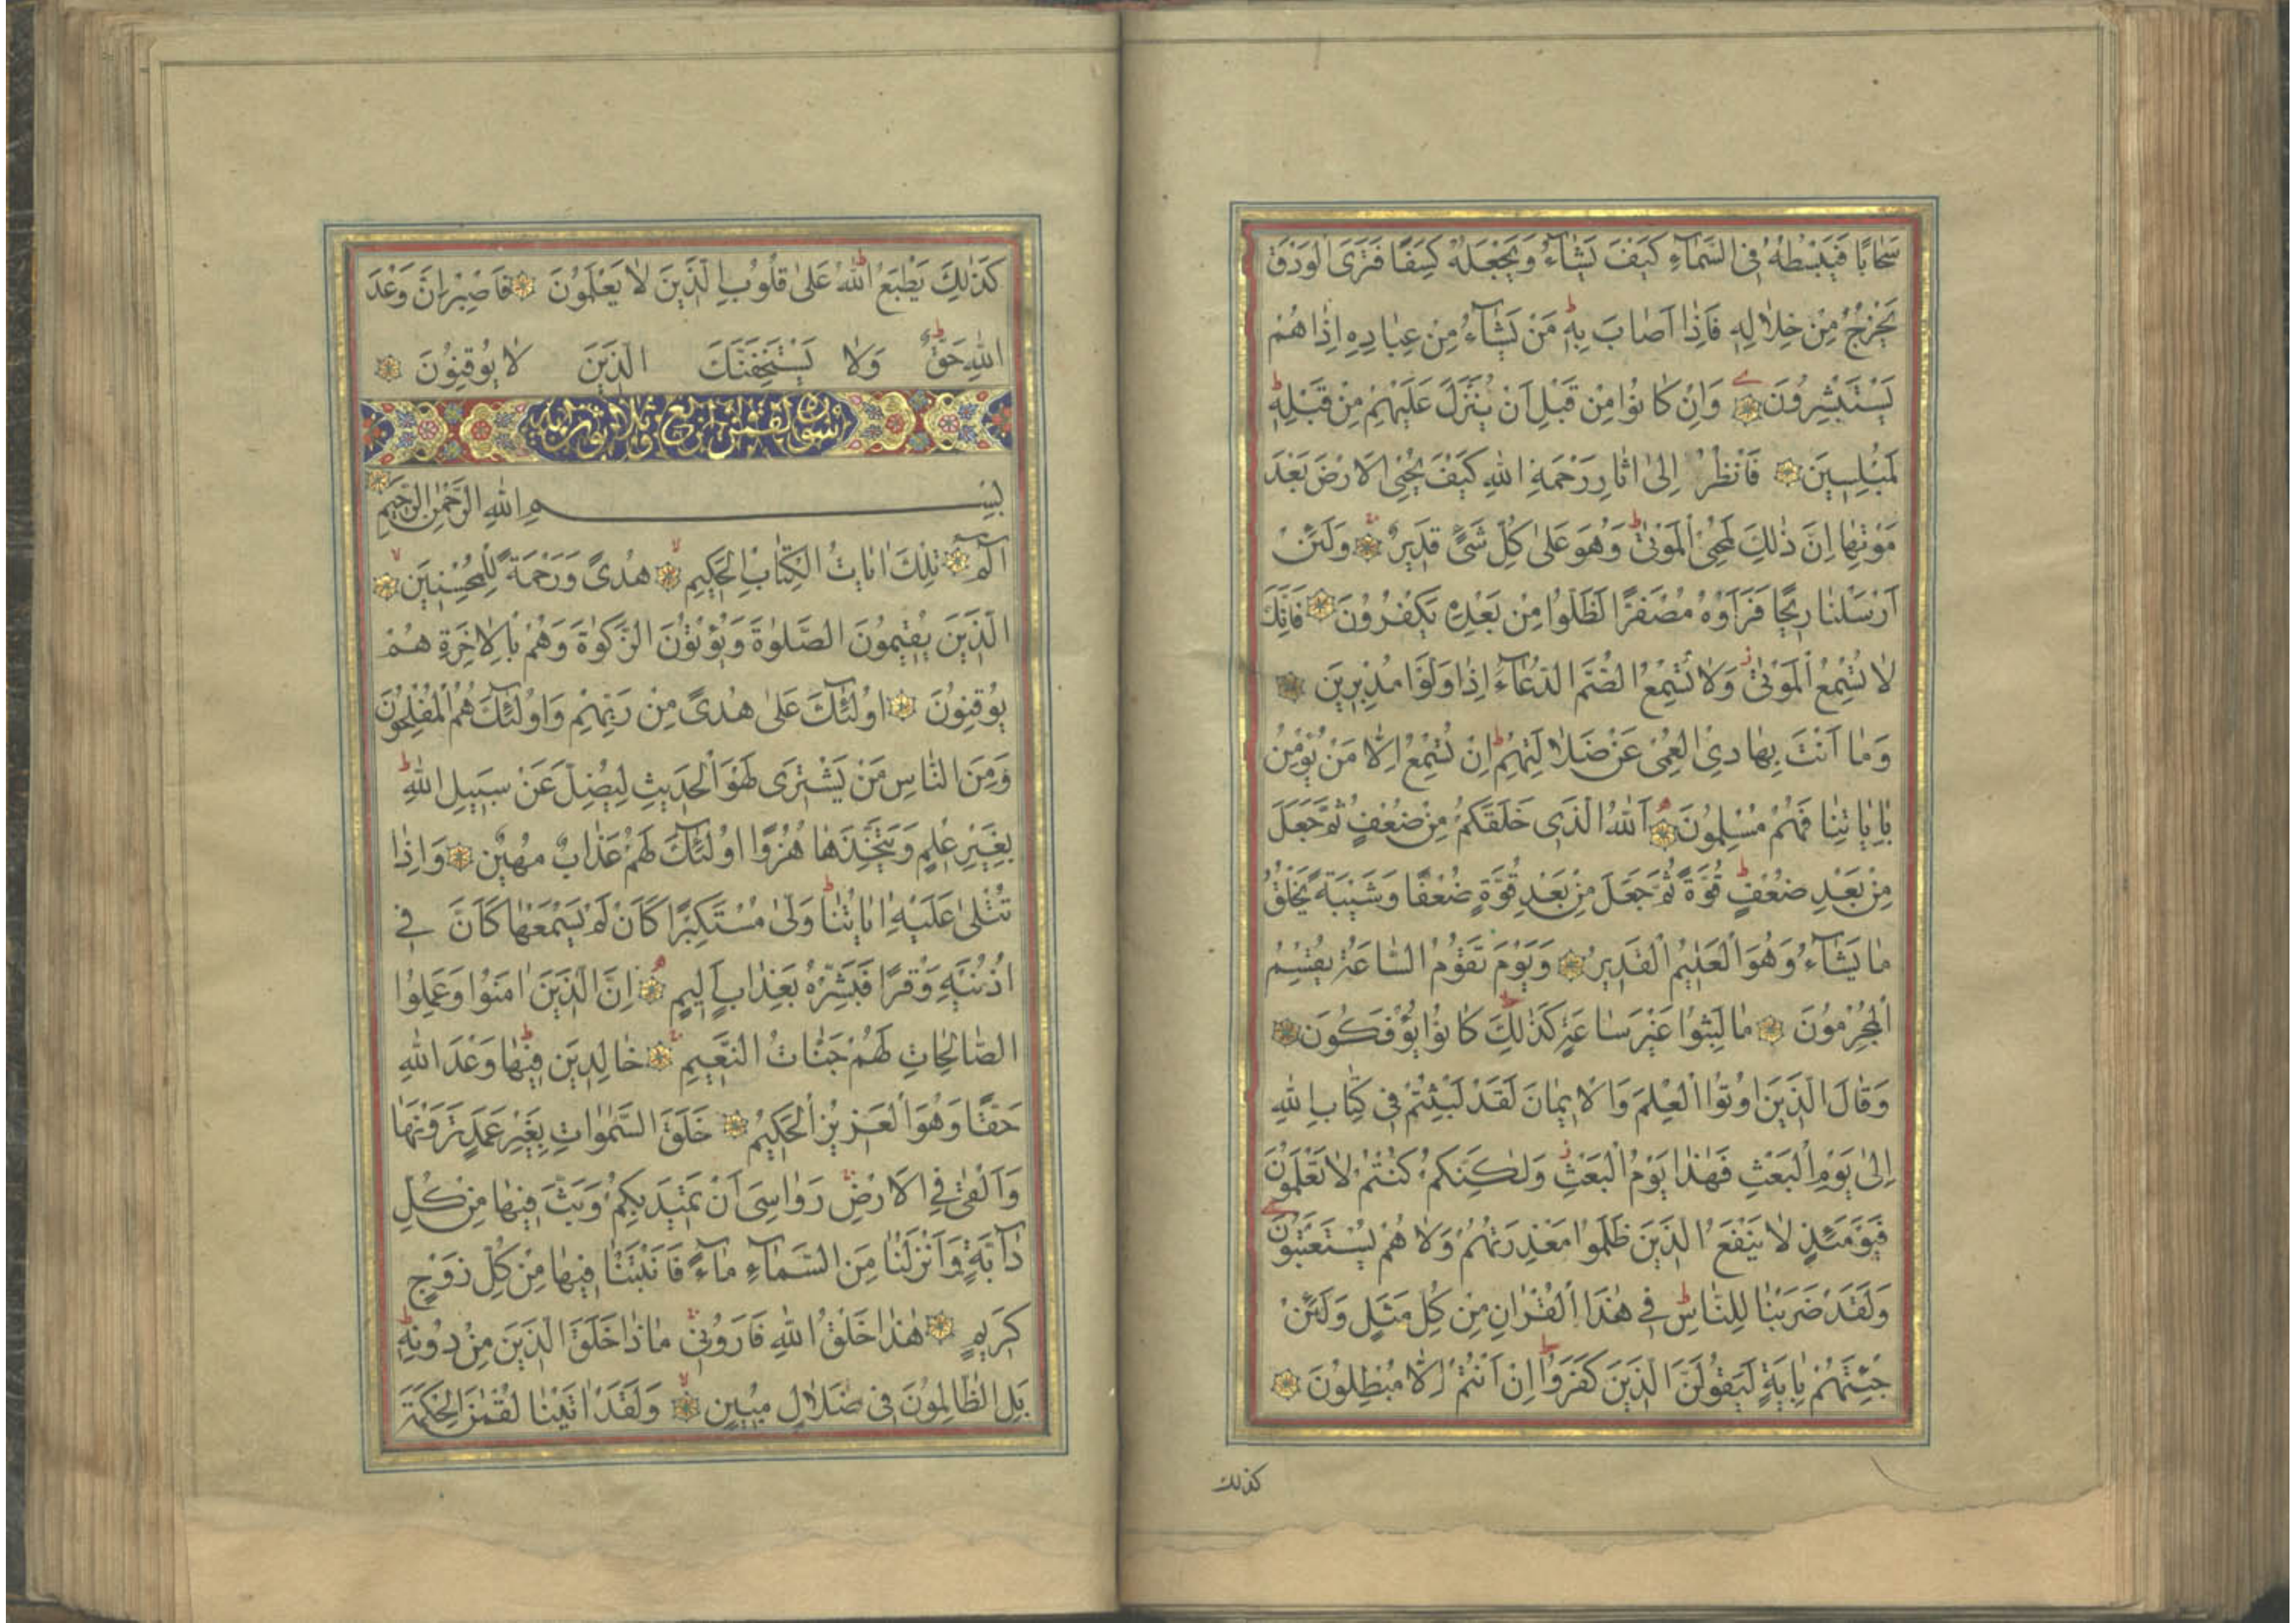 سَحَابًا فَيَبْسُطُهُ فِي السَّمَاءِ كَيْفَ يَشَاءُ وَيَجْعَلُهُ كِسَفًا فَتَرَى الْوَدْقَ
يَخْرُجُ مِنْ خِلَالِهِ فَإِذَا أَصَابَ بِهِ مَنْ يَشَاءُ مِنْ عِبَادِهِ إِذَا هُمْ
يَسْتَبْشِرُونَ وَإِنْ كَانُوا مِنْ قَبْلِ أَنْ يُنَزَّلَ عَلَيْهِمْ مِنْ قَبْلِهِ
لَمُبْلِسِينَ فَانْظُرْ إِلَىٰ اٰثَارِ رَحْمَةِ اللّٰهِ كَيْفَ يُحْيِي الْأَرْضَ بَعْدَ
مَوْتِهَا إِنَّ ذٰلِكَ لَمُحْيِي الْمَوْتٰى وَهُوَ عَلٰى كُلِّ شَيْءٍ قَدِيرٌ وَلَئِنْ
أَرْسَلْنَا رِيحًا فَرَأَوْهُ مُصْفَرًّا لَظَلُّوا مِنْ بَعْدِهِ يَكْفُرُونَ فَإِنَّكَ
لَا تُسْمِعُ الْمَوْتٰى وَلَا تُسْمِعُ الصُّمَّ الدُّعَاءَ إِذَا وَلَّوْا مُدْبِرِينَ
وَمَا أَنْتَ بِهَادِي الْعُمْيِ عَنْ ضَلَالَتِهِمْ إِنْ تُسْمِعُ إِلَّا مَنْ يُؤْمِنُ
بِاٰيَاتِنَا فَهُمْ مُسْلِمُونَ اَللّٰهُ الَّذِي خَلَقَكُمْ مِنْ ضُعْفٍ ثُمَّ جَعَلَ
مِنْ بَعْدِ ضُعْفٍ قُوَّةً ثُمَّ جَعَلَ مِنْ بَعْدِ قُوَّةٍ ضُعْفًا وَشَيْبَةً يَخْلُقُ
مَا يَشَاءُ وَهُوَ الْعَلِيمُ الْقَدِيرُ وَيَوْمَ تَقُومُ السَّاعَةُ يُقْسِمُ
الْمُجْرِمُونَ مَا لَبِثُوا غَيْرَ سَاعَةٍ كَذٰلِكَ كَانُوا يُؤْفَكُونَ
وَقَالَ الَّذِينَ أُوتُوا الْعِلْمَ وَالْإِيمَانَ لَقَدْ لَبِثْتُمْ فِي كِتَابِ اللّٰهِ
إِلٰى يَوْمِ الْبَعْثِ فَهٰذَا يَوْمُ الْبَعْثِ وَلٰكِنَّكُمْ كُنْتُمْ لَا تَعْلَمُونَ
فَيَوْمَئِذٍ لَا يَنْفَعُ الَّذِينَ ظَلَمُوا مَعْذِرَتُهُمْ وَلَا هُمْ يُسْتَعْتَبُونَ
وَلَقَدْ ضَرَبْنَا لِلنَّاسِ فِي هٰذَا الْقُرْاٰنِ مِنْ كُلِّ مَثَلٍ وَلَئِنْ
جِئْتَهُمْ بِاٰيَةٍ لَيَقُولَنَّ الَّذِينَ كَفَرُوا إِنْ أَنْتُمْ إِلَّا مُبْطِلُونَ
كذلك
كَذٰلِكَ يَطْبَعُ اللّٰهُ عَلٰى قُلُوبِ الَّذِينَ لَا يَعْلَمُونَ فَاصْبِرْ إِنَّ وَعْدَ
اللّٰهِ حَقٌّ وَلَا يَسْتَخِفَّنَّكَ الَّذِينَ لَا يُوقِنُونَ
سورة لقمن اربع وثلاثون اية
بِسْمِ اللّٰهِ الرَّحْمٰنِ الرَّحِيمِ
الٓمٓ تِلْكَ اٰيَاتُ الْكِتَابِ الْحَكِيمِ هُدًى وَرَحْمَةً لِلْمُحْسِنِينَ
الَّذِينَ يُقِيمُونَ الصَّلٰوةَ وَيُؤْتُونَ الزَّكٰوةَ وَهُمْ بِالْاٰخِرَةِ هُمْ
يُوقِنُونَ اُولٰئِكَ عَلٰى هُدًى مِنْ رَبِّهِمْ وَاُولٰئِكَ هُمُ الْمُفْلِحُونَ
وَمِنَ النَّاسِ مَنْ يَشْتَرِي لَهْوَ الْحَدِيثِ لِيُضِلَّ عَنْ سَبِيلِ اللّٰهِ
بِغَيْرِ عِلْمٍ وَيَتَّخِذَهَا هُزُوًا اُولٰئِكَ لَهُمْ عَذَابٌ مُهِينٌ وَإِذَا
تُتْلٰى عَلَيْهِ اٰيَاتُنَا وَلّٰى مُسْتَكْبِرًا كَأَنْ لَمْ يَسْمَعْهَا كَأَنَّ فِي
اُذُنَيْهِ وَقْرًا فَبَشِّرْهُ بِعَذَابٍ أَلِيمٍ إِنَّ الَّذِينَ اٰمَنُوا وَعَمِلُوا
الصَّالِحَاتِ لَهُمْ جَنَّاتُ النَّعِيمِ خَالِدِينَ فِيهَا وَعْدَ اللّٰهِ
حَقًّا وَهُوَ الْعَزِيزُ الْحَكِيمُ خَلَقَ السَّمٰوَاتِ بِغَيْرِ عَمَدٍ تَرَوْنَهَا
وَأَلْقٰى فِي الْأَرْضِ رَوَاسِيَ أَنْ تَمِيدَ بِكُمْ وَبَثَّ فِيهَا مِنْ كُلِّ
دَابَّةٍ وَأَنْزَلْنَا مِنَ السَّمَاءِ مَاءً فَأَنْبَتْنَا فِيهَا مِنْ كُلِّ زَوْجٍ
كَرِيمٍ هٰذَا خَلْقُ اللّٰهِ فَأَرُونِي مَاذَا خَلَقَ الَّذِينَ مِنْ دُونِهِ
بَلِ الظَّالِمُونَ فِي ضَلَالٍ مُبِينٍ وَلَقَدْ اٰتَيْنَا لُقْمٰنَ الْحِكْمَةَ